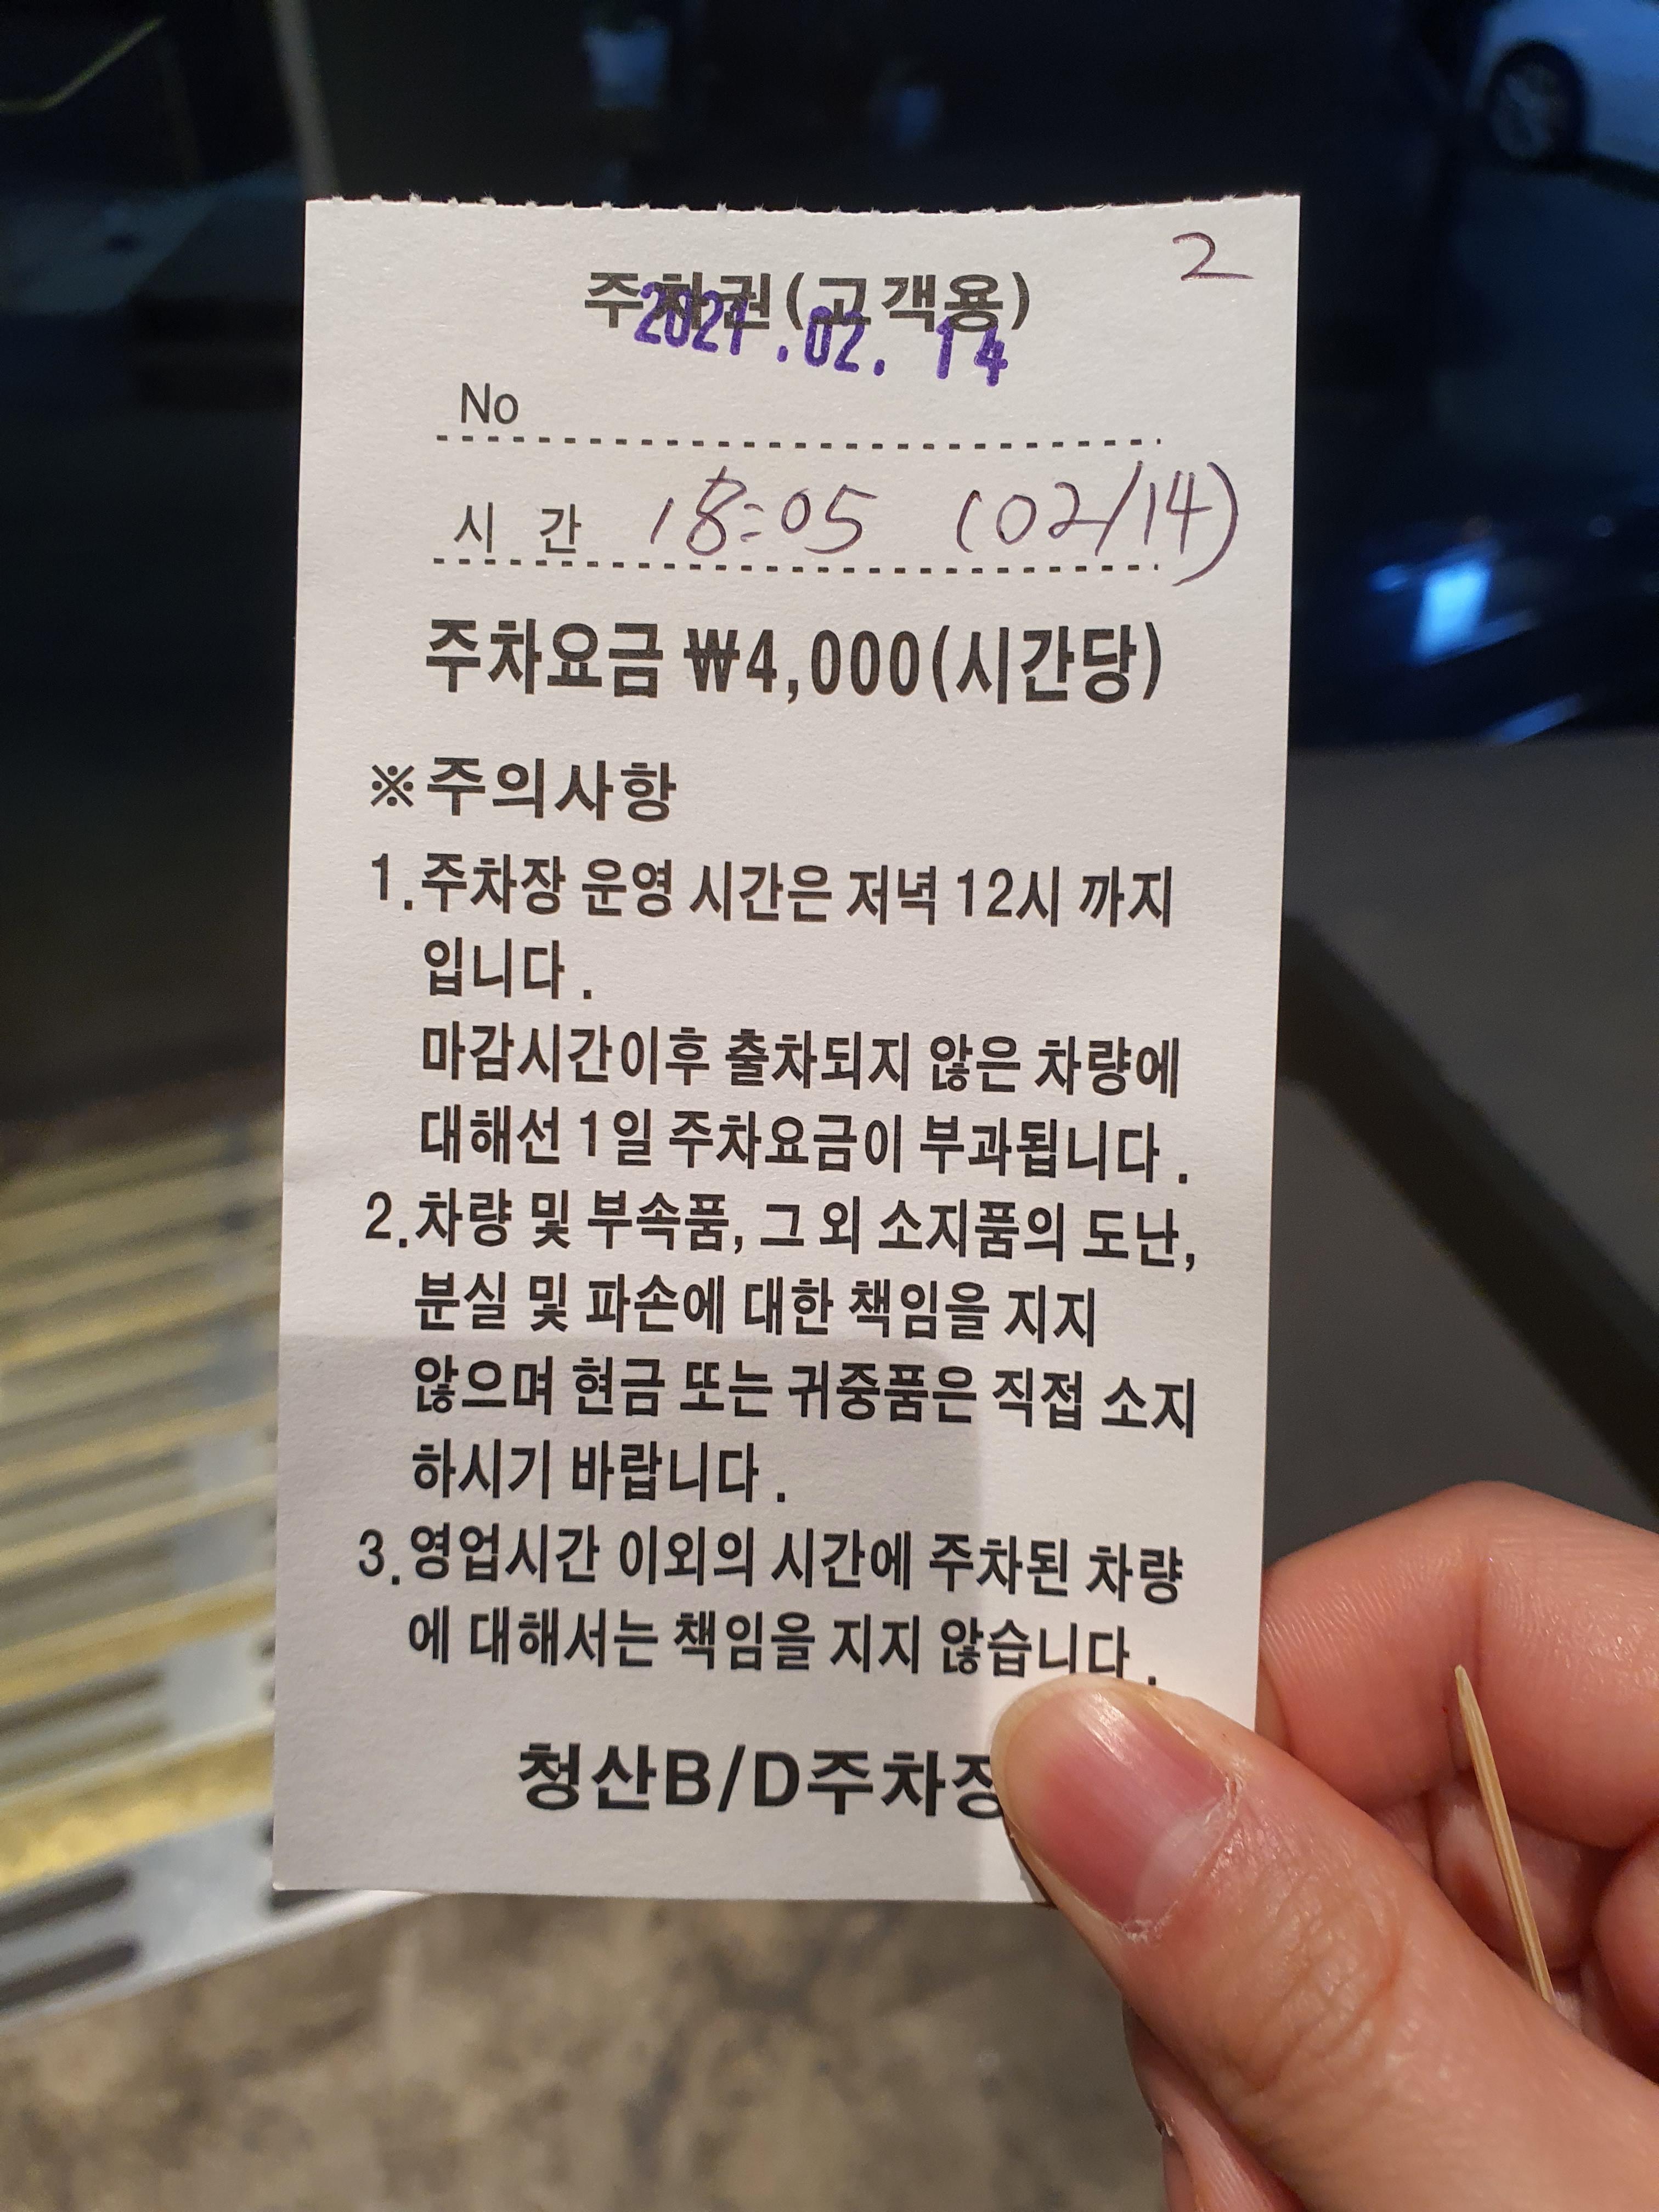 2
주차권(고객용)
2021.02.14
No
시 간 18:05 (02/14)
주차요금 ₩4,000(시간당)
※주의사항
1.주차장 운영 시간은 저녁 12시 까지
입니다.
마감시간이후 출차되지 않은 차량에
대해선 1일 주차요금이 부과됩니다.
2.차량 및 부속품, 그 외 소지품의 도난,
분실 및 파손에 대한 책임을 지지
않으며 현금 또는 귀중품은 직접 소지
하시기 바랍니다.
3.영업시간 이외의 시간에 주차된 차량
에 대해서는 책임을 지지 않습니다.
청산B/D주차장